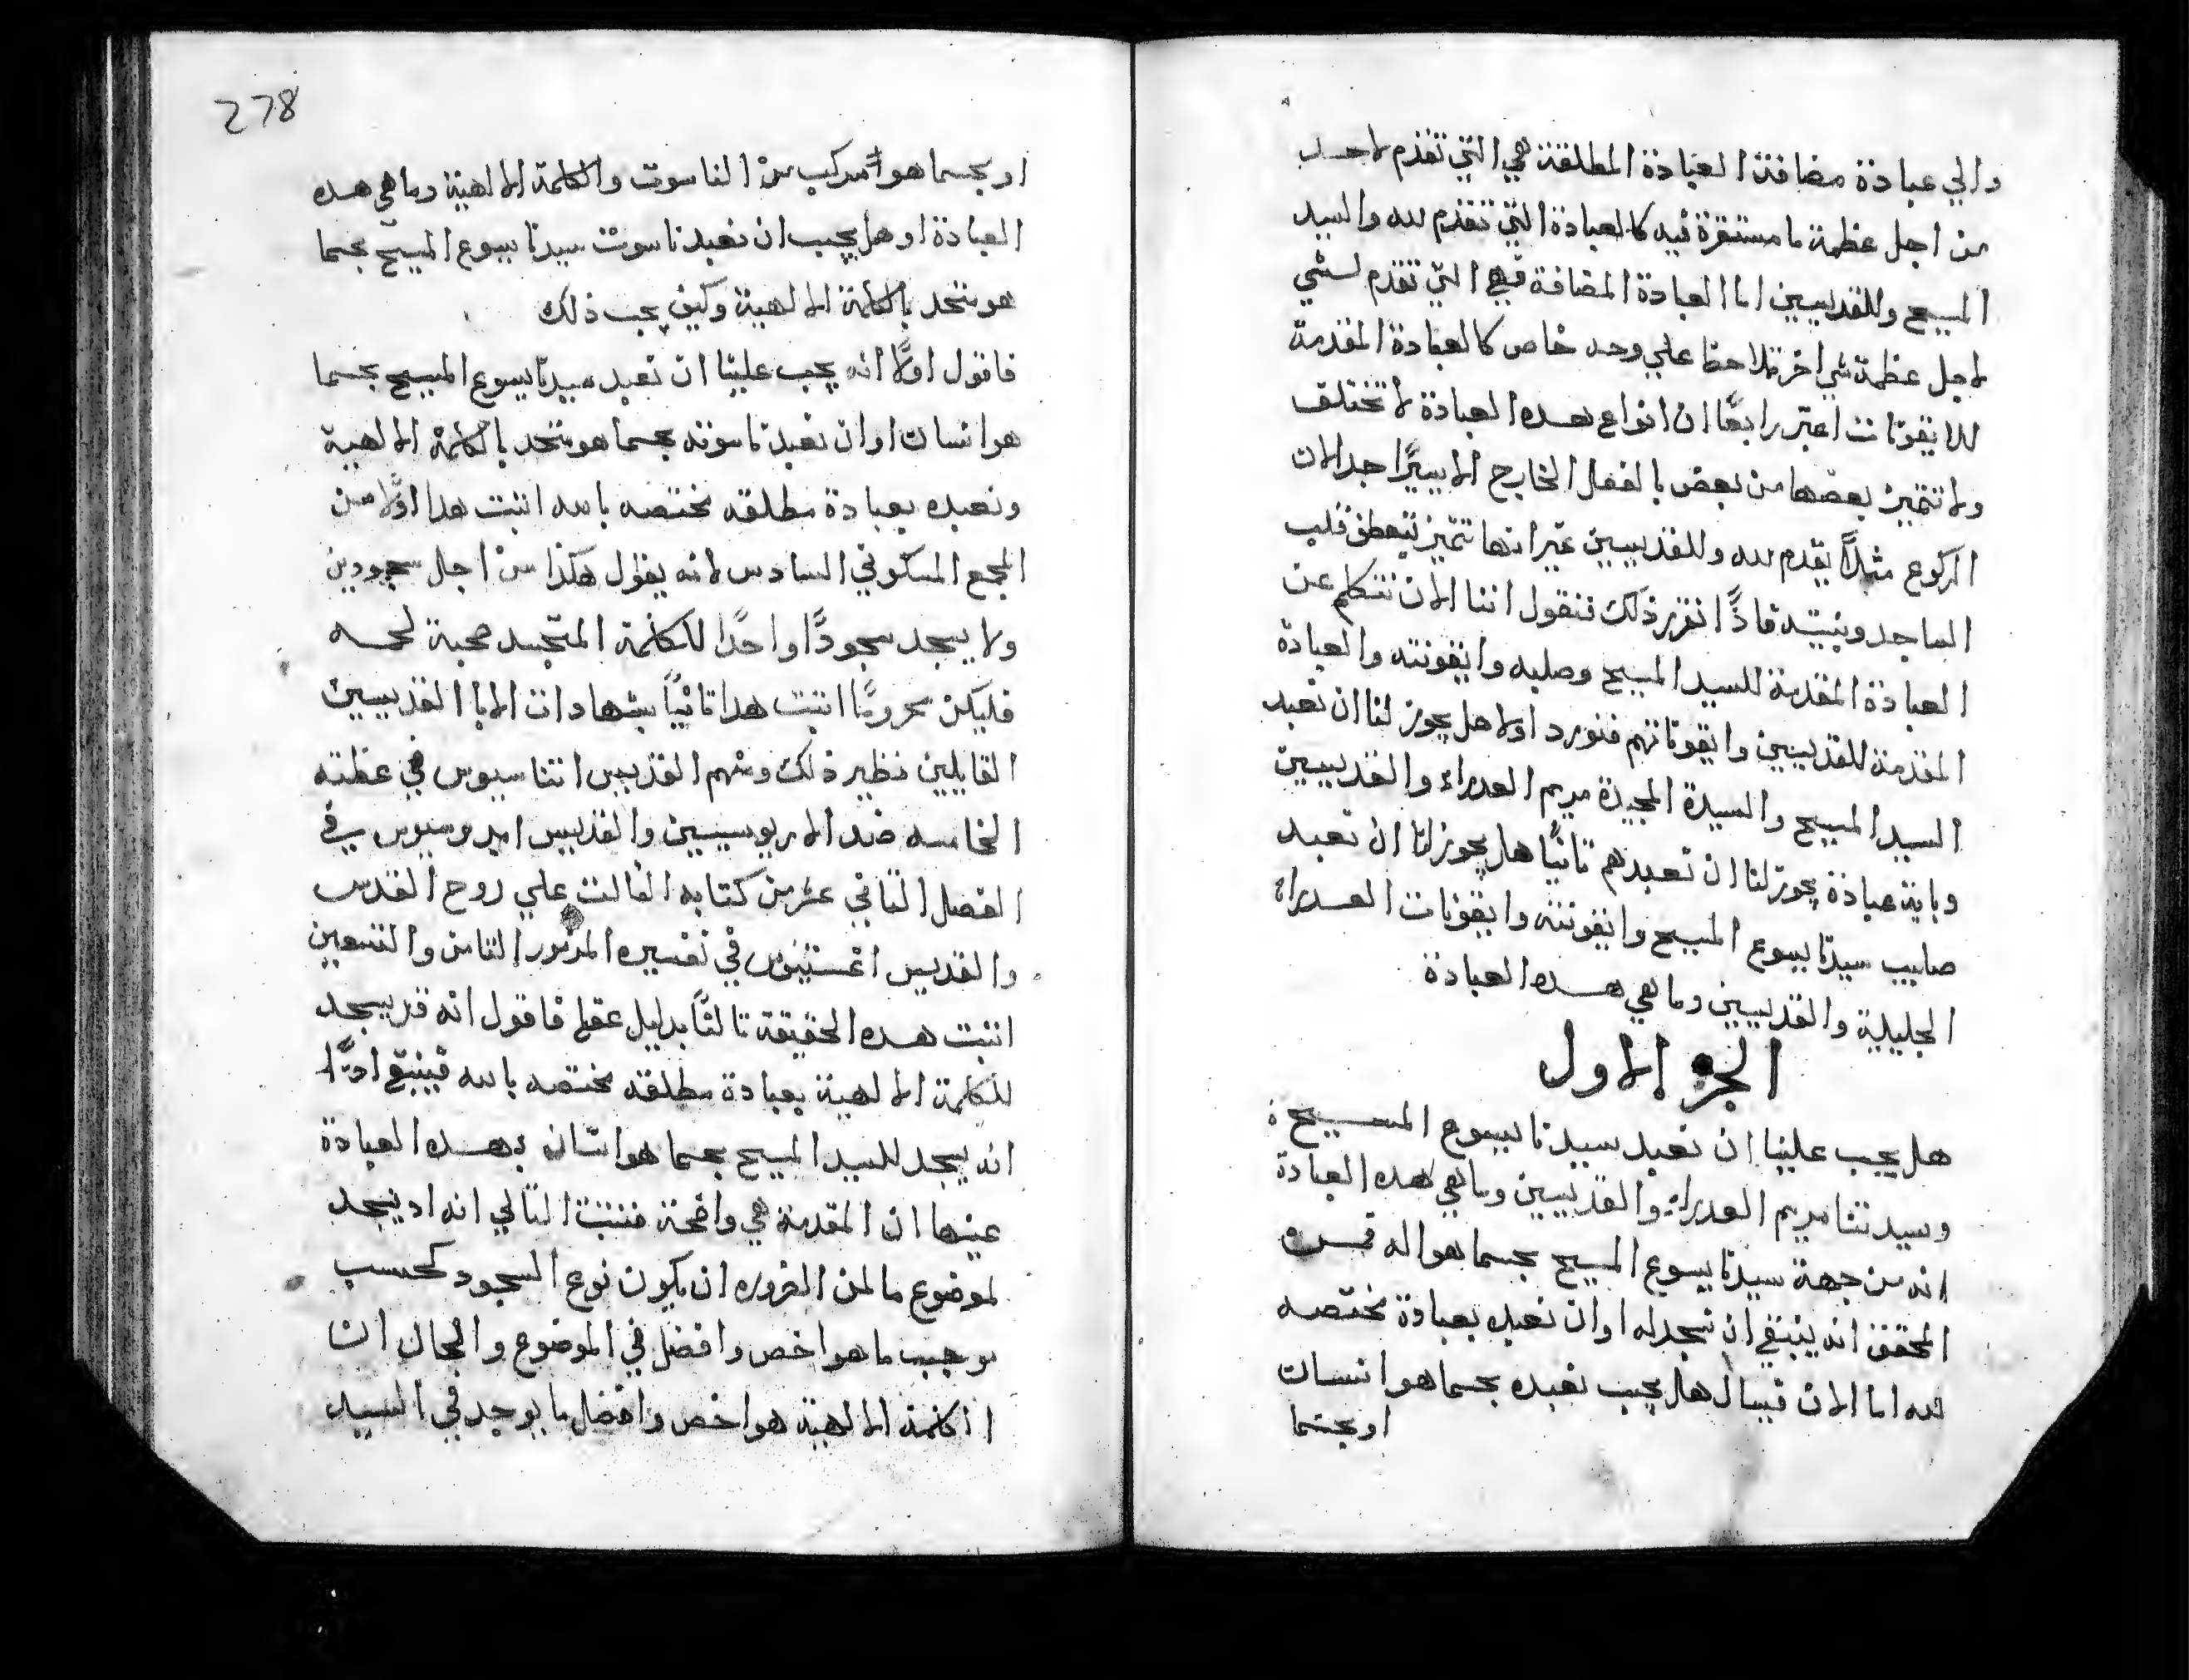 والي عبادة مضافة العبادة المطلقة هي التي تقدم لاحد
من اجل عظمة ما مستقرة فيه كالعبادة التي تقدم لله والسيد
المسيح وللقديسين اما العبادة المضافة فهي التي تقدم لشي
لاجل عظمة شي اخر تلاحظا علي وجه خاص كالعبادة المقدمة
للايقونات اعتبر رابعًا ان انواع هده العبادة لا تختلف
ولا تتميز بعضها من بعض بالفعل الخارج الا يسيرًا جدا لان
الركوع مثلاً يقدم لله وللقديسين غير انها تتميز بتعطف قلب
الساجد ونيته فاذًا نقرر ذلك فنقول اننا الان نتكلم عن
العبادة المقدمة للسيد المسيح وصليبه وايقونته والعبادة
المقدمة للقديسين وايقوناتهم فنورد اولا هل يجوز لنا ان نعبد
السيد المسيح والسيدة المجيدة مريم العدراء والقديسين
وباية عبادة يجوز لنا ان نعبدهم تانيًا هل يجوز لنا ان نعبد
صليب سيدنا يسوع المسيح وايقونته وايقونات العدراء
الجليلة والقديسين وما هي هده العبادة
الجز الاول
هل يجب علينا ان نعبد سيدنا يسوع المسيح
وسيدتنا مريم العدراء والقديسين وما هي هده العبادة
انه من جهة سيدنا يسوع المسيح بحسما هو اله فمن
المحقق انه ينبغي ان نسجد له اوان نعبده بعبادة مختصه
لله اما الان فيسال هل يجب نعبده بحسما هو انسان
او بحسما
278
او بحسما هو مركب من الناسوت والكلمة الالهية وما هي هده
العبادة او هل يجب ان نعبد ناسوت سيدنا يسوع المسيح بحسما
هو متحد بالكلمة الالهية وكيف يجب ذلك
فاقول اولًا انه يجب علينا ان نعبد سيدنا يسوع المسيح بحسما
هو انسان اوان نعبد ناسوته بحسما هو متحد بالكلمة الالهية
ونعبده بعبادة مطلقه مختصه بالله اتبت هدا اولًا من
المجمع المسكوني السادس لانه يقول هكذا من اجل سجودين
ولا يسجد سجودًا واحدًا للكلمة المتجسد صحبة لحمه
فليكن محرومًا اتبت هدا تانيًا بشهادات الابا القديسين
القايلين نظير ذلك ومنهم القديس اتناسيوس في عظته
الخامسه ضد الاريوسيين والقديس امبروسيوس في
الفصل التاني عشر من كتابه التالت علي روح القدس
والقديس اغستينوس في تفسيره المزمور التامن والتسعين
اتبت هده الحقيقة تالتًا بدليل عقلي فاقول انه قد يسجد
للكلمة الالهية بعبادة مطلقه مختصه بالله فينبغي ادًا
انه يسجد للسيد المسيح بحسما هو انسان بهده العبادة
عينها ان المقدمة هي واضحة فنتبت التالي انه اد يسجد
لموضوع ما لمن الضروره ان يكون نوع السجود كحسب
موجب ما هو اخص وافضل في الموضوع والحال ان
الكلمة الالهية هو اخص وافضل ما يوجد في السيد